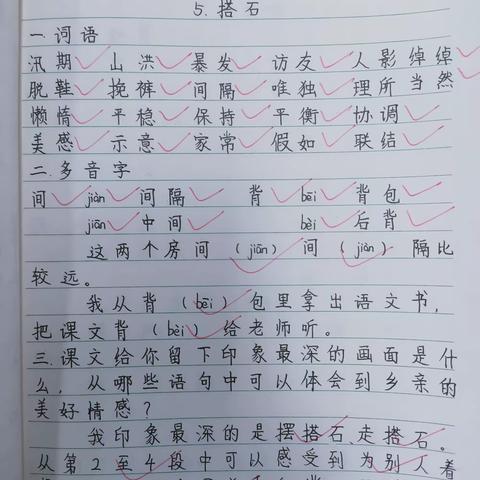 5.搭石
一.词语
汛期 山洪 暴发 访友 人影绰绰
脱鞋 挽裤 间隔 唯独 理所当然
懒惰 平稳 保持 平衡 协调
美感 示意 家常 假如 联结
二.多音字
间 jiàn 间隔 背 bēi 背包
jiān 中间 bèi 后背
这两个房间(jiān)间(jiàn)隔比
较远。
我从背(bēi)包里拿出语文书,
把课文背(bèi)给老师听。
三.课文给你留下印象最深的画面是什
么,从哪些语句中可以体会到乡亲的
美好情感?
我印象最深的是摆搭石走搭石。
从第2至4段中可以感受到为别人着